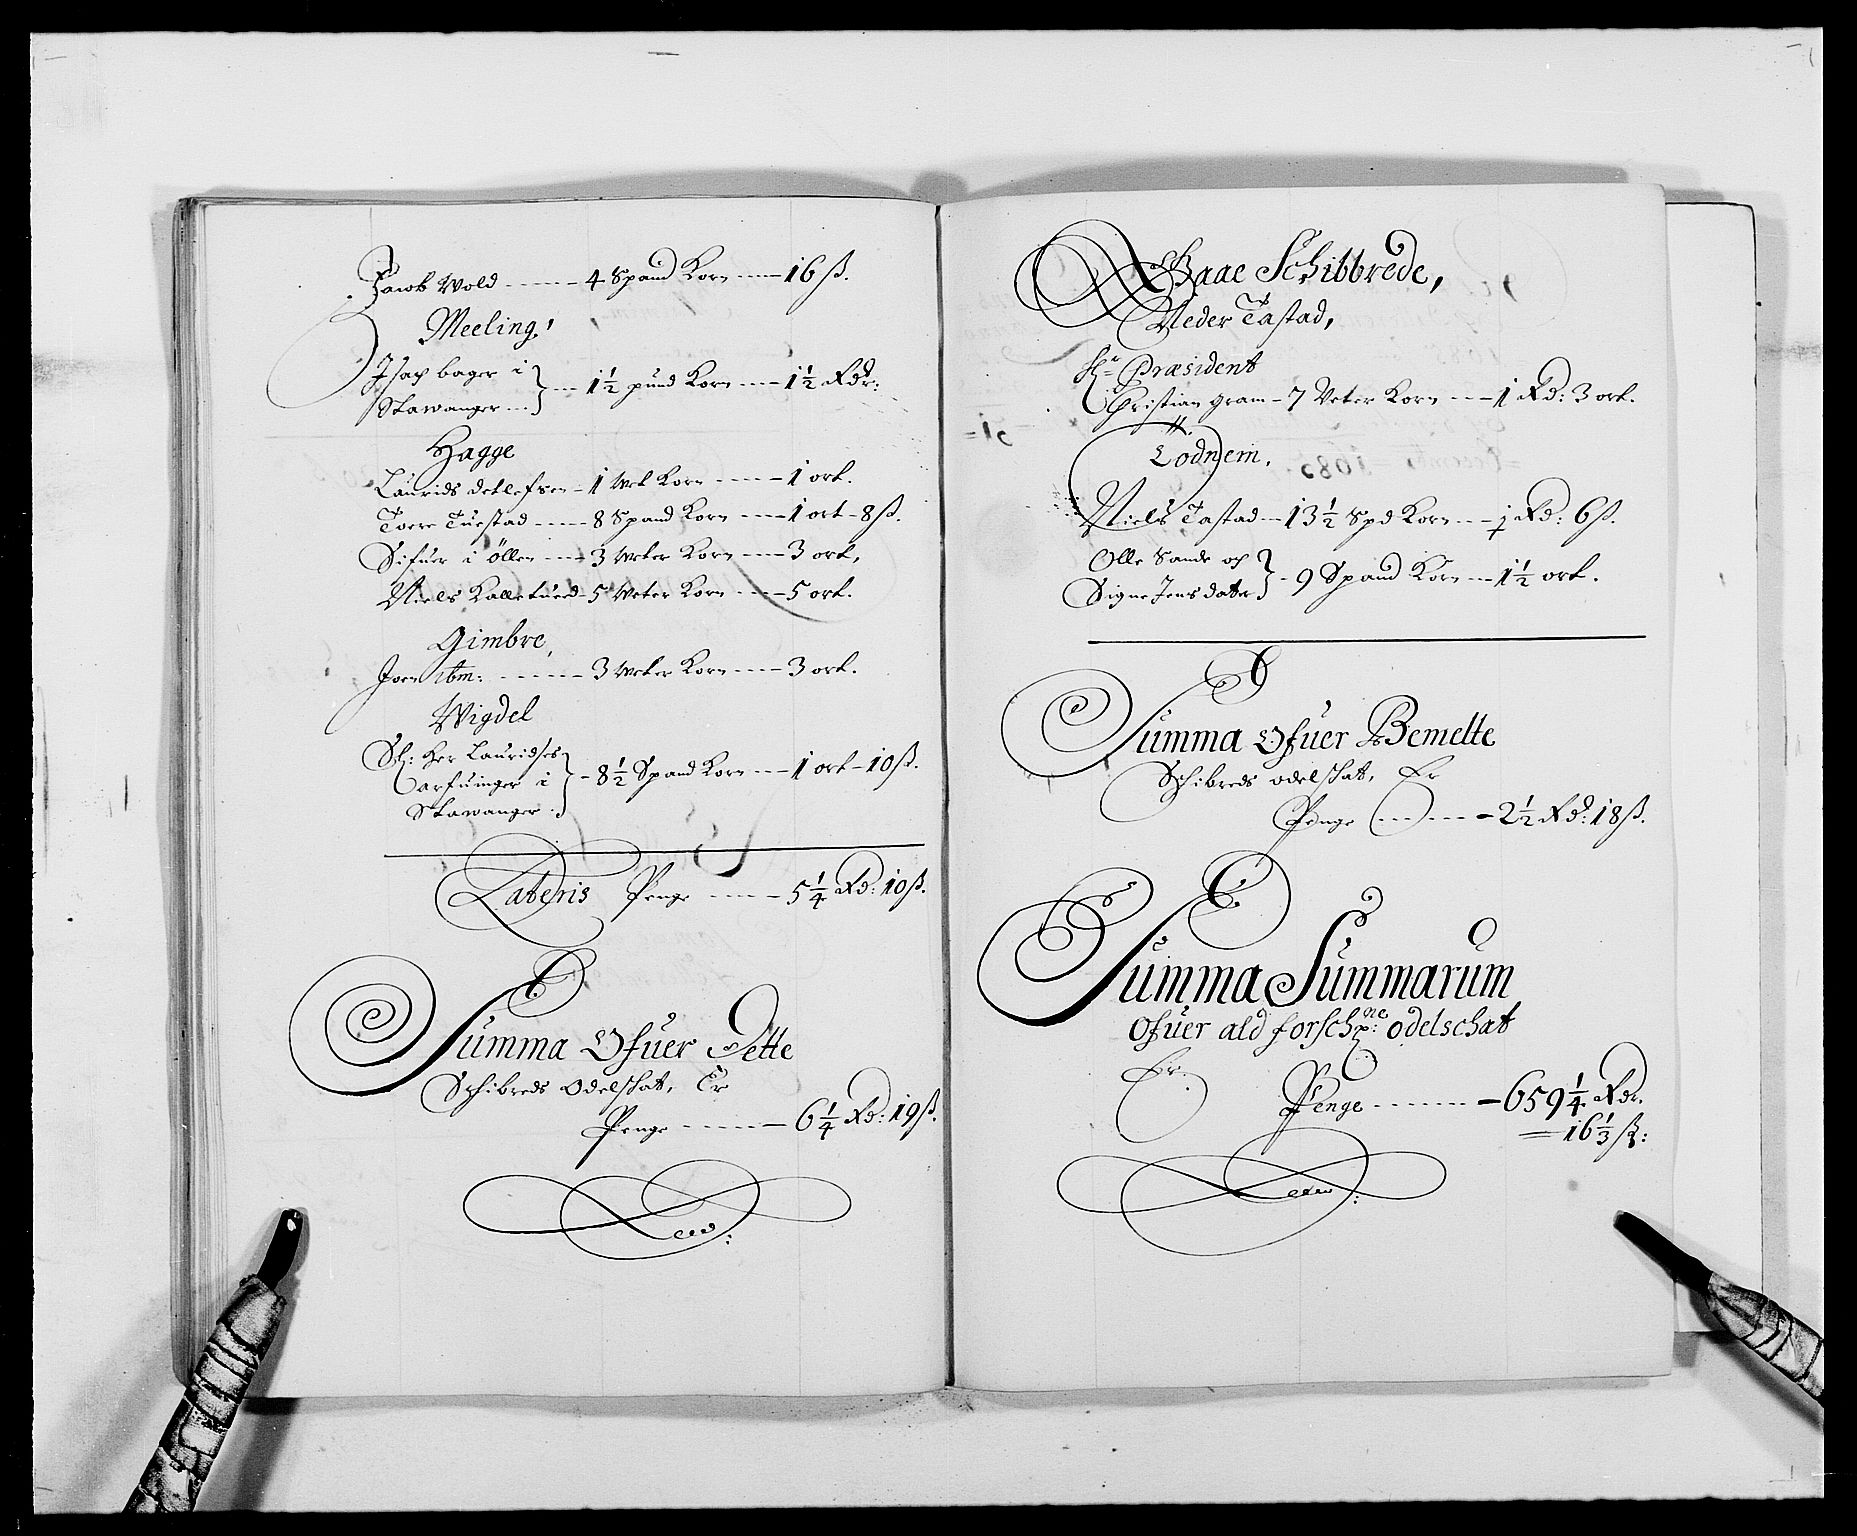 Jacob Wold ----- 4 Spand Korn ---- 16 ß.
Meeling,
Isach bager i
Stawanger ... } --- 1½ pund Korn --- 1½ Rdr:
Hagge
Laurids detlefsen - 1 Vet Korn ---- 1 ort.
Torre Tuestad ---- 8 Spand Korn --- 1 ort - 8 ß.
Sifuer i Öllen --- 3 Veter Korn --- 3 ort,
Niels Kalletued - 5 Veter Korn --- 5 ort.
Gimbre,
Joen ibm: ------ 3 Veter Korn --- 3 ort.
Wigdel
Sl: Her Lauridses
arfuinger i
Stawanger . } - 8½ Spand Korn --- 1 ort - 10 ß.
Lateris Penge ---- 5¼ Rd: 10 ß.
Summa Ofuer Dette
Schibreds odelschat, Er
Penge ----- 6¼ Rd: 19 ß.
Aaae Schibbrede,
Neder Tastad,
Hr: Præsident
Christian Gram - 7 Veter Korn --- 1 Rd: 3 ort.
Lödnem,
Niels Tastad -- 13½ Spd Korn --- 1 Rd: 6 ß.
Olle Sande och
Signe Jens datter } - 9 Spand Korn --- 1½ ort.
Summa Ofuer Bemelte
Schibreds odelschat, Er
Penge ------ 2½ Rd: 18 ß.
Summa Summarum
Ofuer ald forschne: odelschat
Er.
Penge ------ 659¼ Rdr.
= 16⅓ ß: